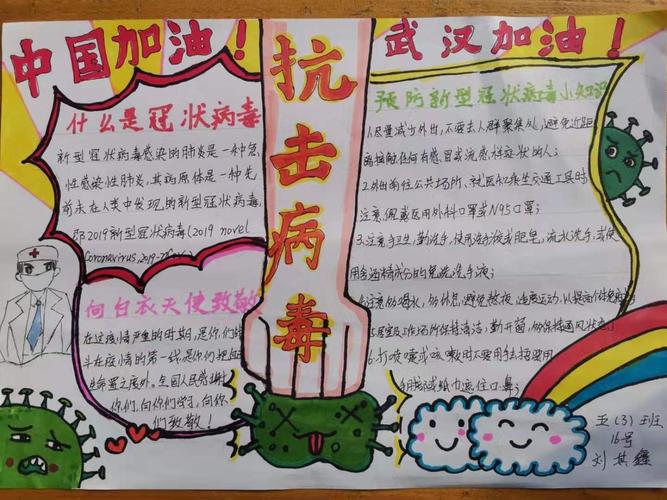 中国加油！
武汉加油！
抗击病毒
什么是冠状病毒
新型冠状病毒感染的肺炎是一种急
性感染性肺炎，其病原体是一种先
前未在人类中发现的新型冠状病毒，
即2019新型冠状病毒(2019 novel
coronavirus,2019-
向白衣天使致敬
在这疫情严重的时期，是你们战
斗在疫情的第一线是你们把自
生命置之度外。全国人民感谢
你们，向你们学习，向你
们致敬！
预防新型冠状病毒小知识
1.尽量减少外出，不要去人群聚集处，避免近距
离接触任何有感冒或流感样症状的人；
2.外出前往公共场所、就医和乘坐交通工具时
注意，佩戴医用外科口罩或N95口罩；
3.注意手卫生，勤洗手，使用洗手液或肥皂，流水洗手，或使
用含酒精成分的免洗洗手液；
4.注意勤喝水，勤休息，避免熬夜，适度运动，以提高个体免疫
5.居室及工作场所保持清洁，勤开窗，勤保持通风状态；
6.打喷嚏或咳嗽时
用 纸巾遮住口鼻；
五(3)班
16号
刘其鑫